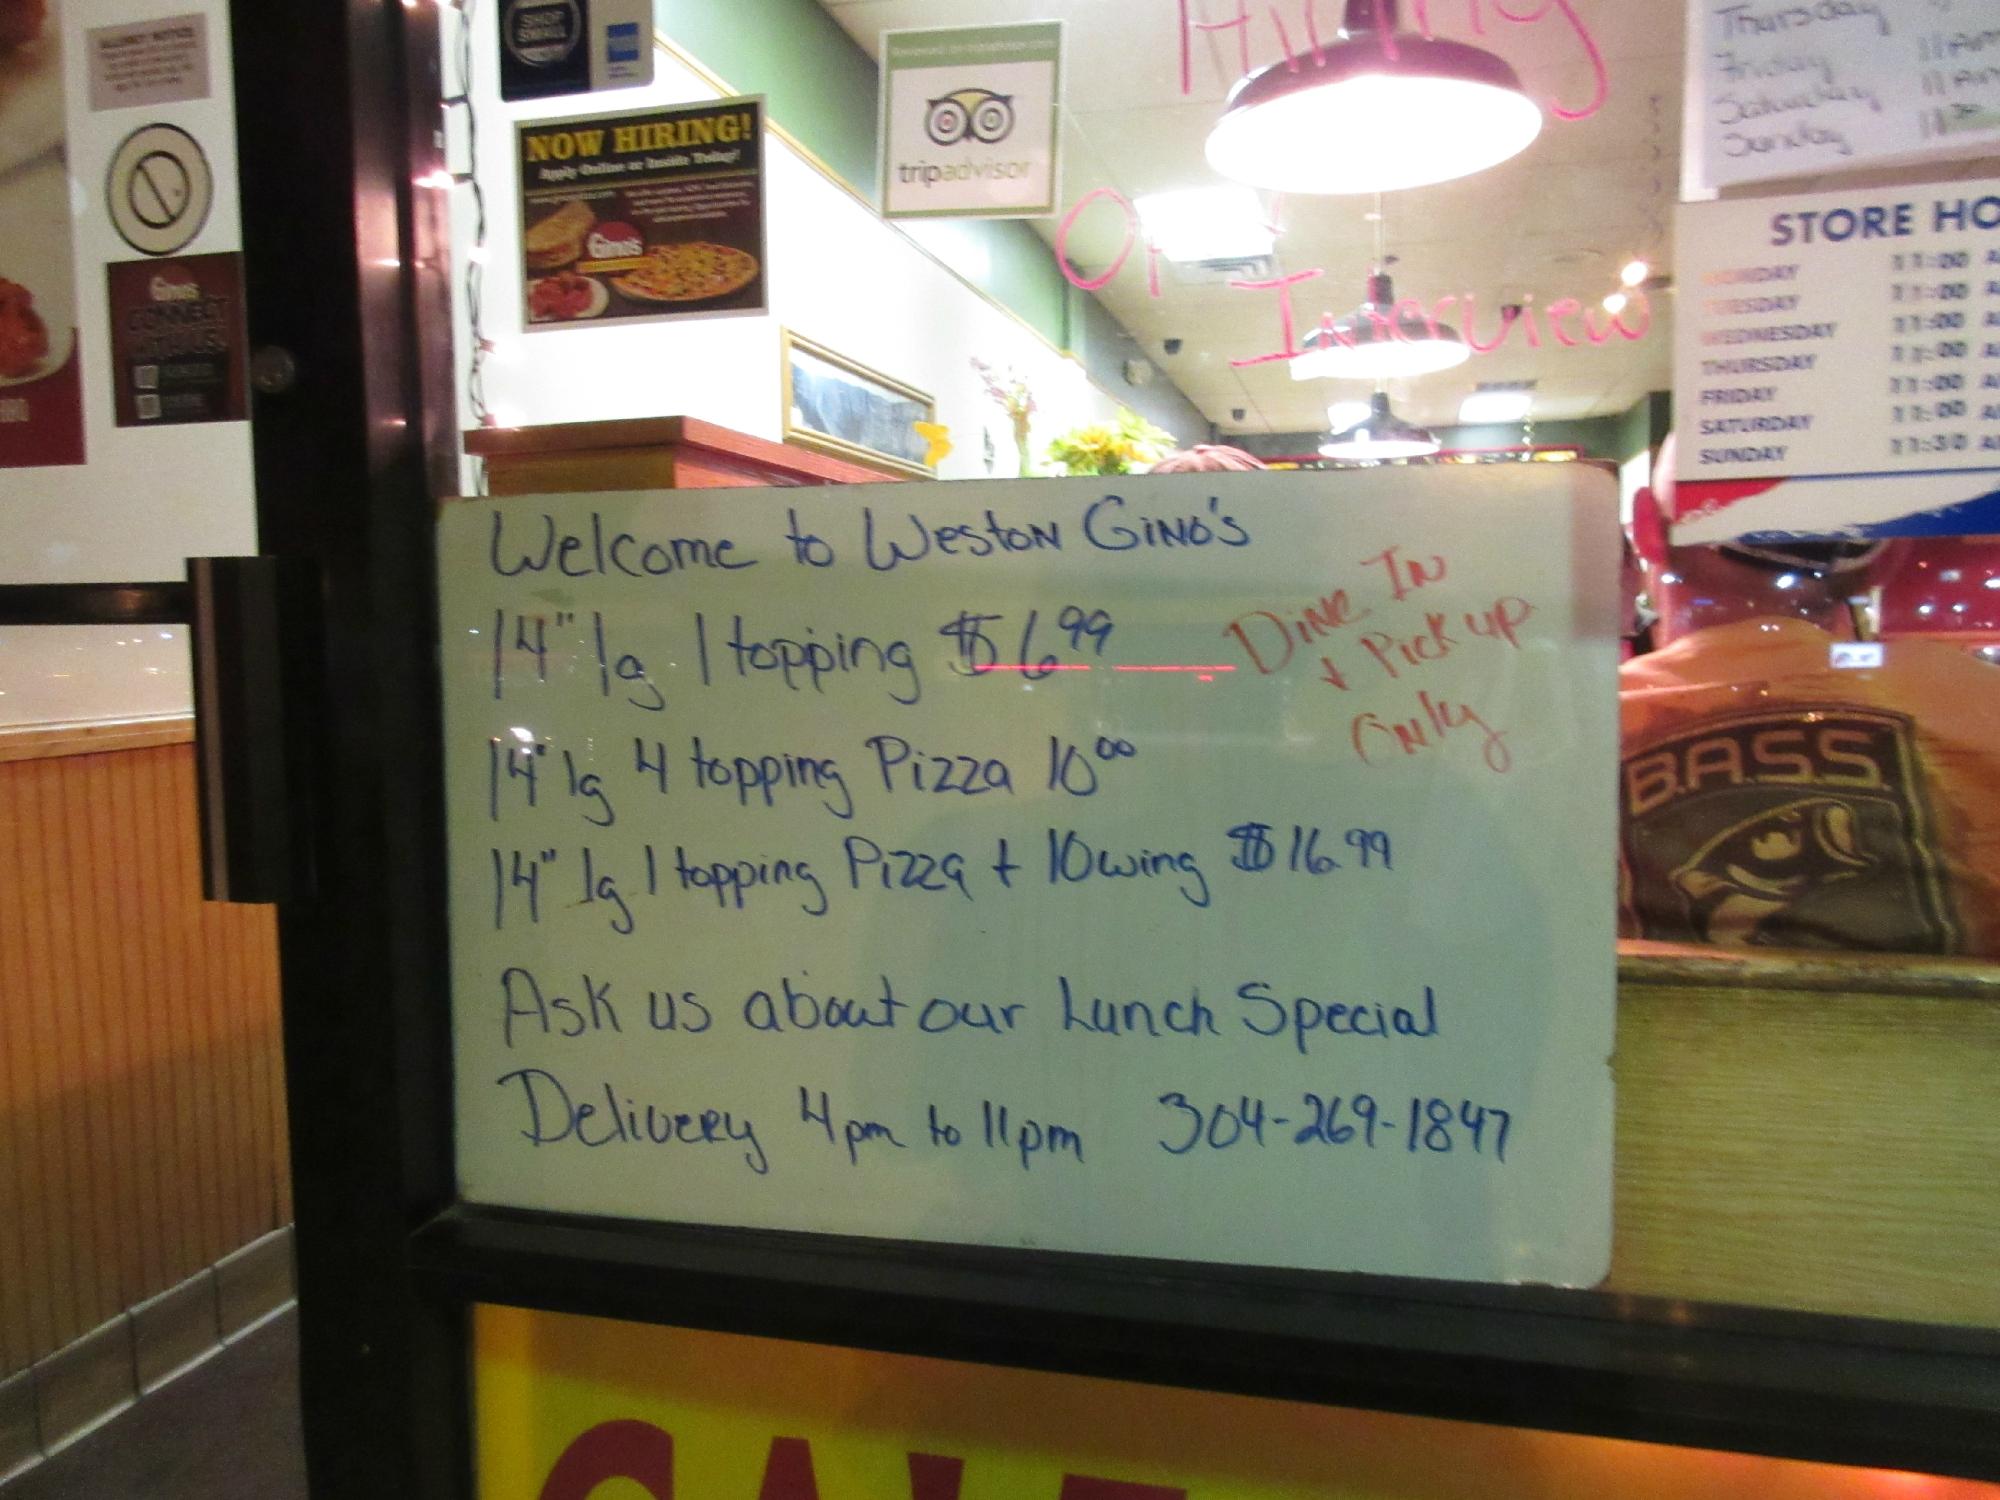 SHOP
SMALL
NOW HIRING!
Apply Online or Inside Today!
Gino's
tripadvisor
Hiring
Interview
Thursday
Friday 11 AM
Saturday 11 AM
Sunday 11:30
STORE HO
MONDAY 11:00 A
TUESDAY 11:00 A
WEDNESDAY 11:00 A
THURSDAY 11:00 A
FRIDAY 11:00 A
SATURDAY 11:00 A
SUNDAY 11:30 A
Gino's
CONNECT
WITH US
Welcome to Weston Gino's
14" lg 1 topping $6.99
Dine In
+ Pick up
Only
14" lg 4 topping Pizza 10.00
14" lg 1 topping Pizza + 10 wing $16.99
Ask us about our Lunch Special
Delivery 4pm to 11pm 304-269-1847
B.A.S.S.